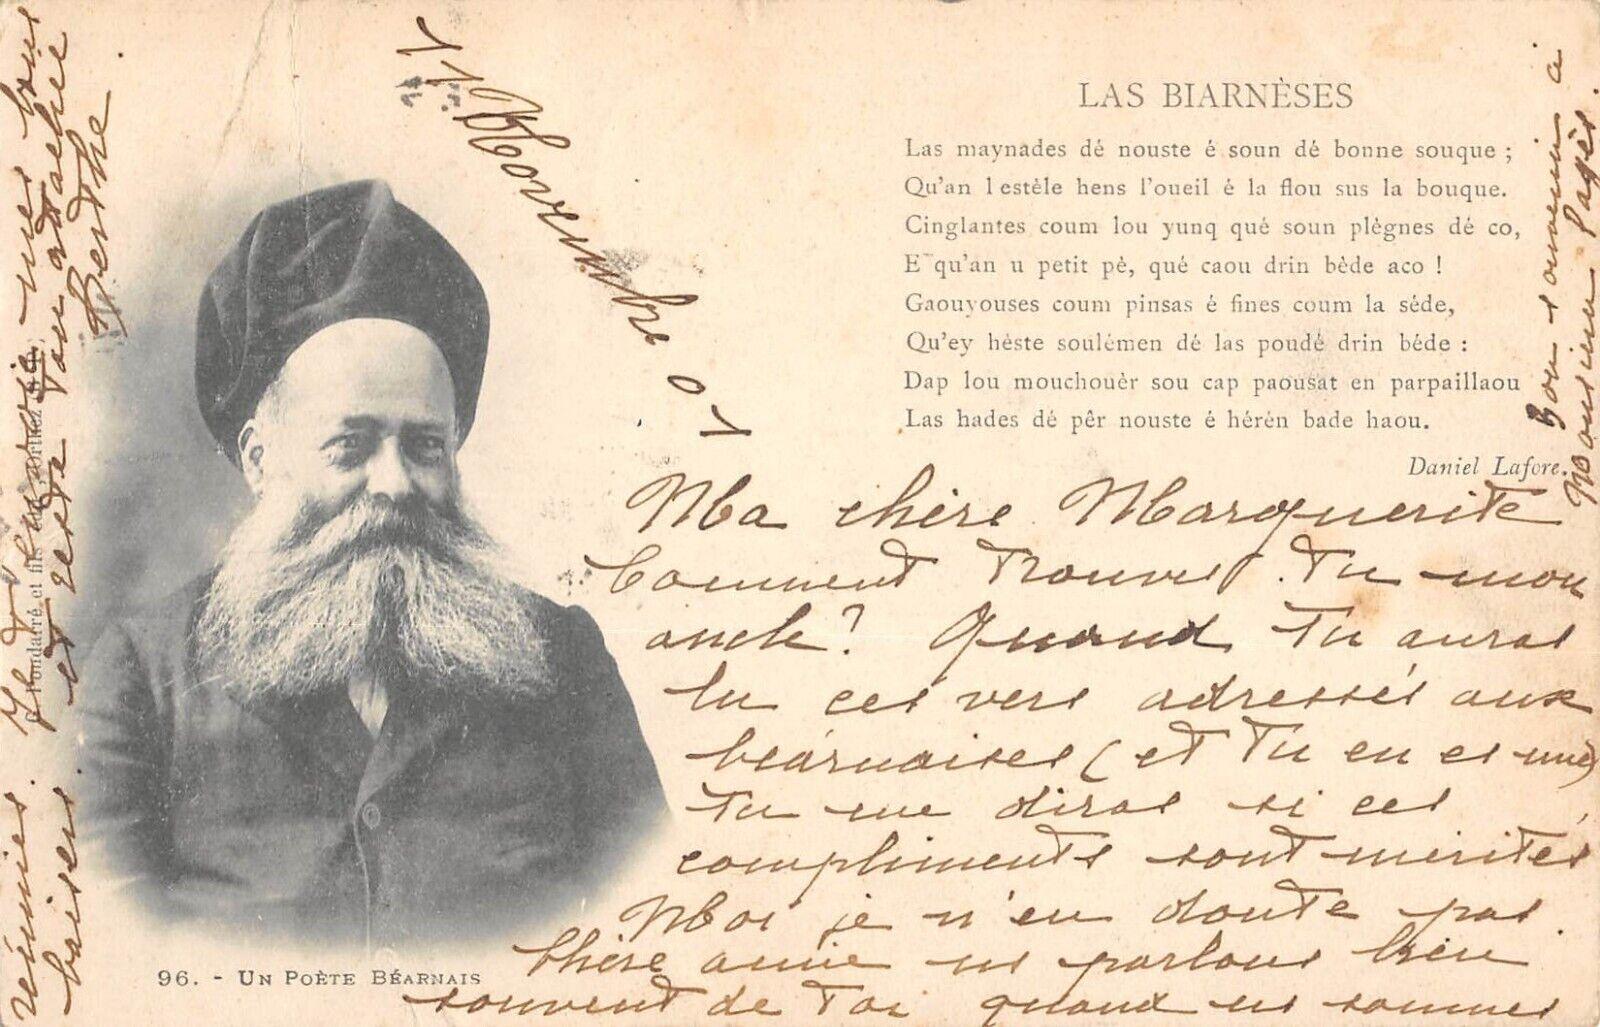 LAS BIARNÈSES
Las maynades dé nouste é soun dé bonne souque ;
Qu'an l estèle hens l'oueil é la flou sus la bouque.
Cinglantes coum lou yunq qué soun plègnes dé co,
E qu'an u petit pè, qué caou drin bède aco !
Gaouyouses coum pinsas é fines coum la séde,
Qu'ey hèste soulémen dé las poudé drin béde :
Dap lou mouchouèr sou cap paousat en parpaillaou
Las hades dé pêr nouste é hérèn bade haou.
Daniel Lafore.
11 Novembre 01
Ma chère Marguerite
Comment trouves tu mon
oncle? Quand tu auras
lu ces vers adressés aux
béarnaises (et tu en es une)
tu me diras si ces
compliments sont mérités
Moi je n'en doute pas
Chère amie ns parlons bien
souvent de toi quand ns sommes
réunies.
baisers
et reste ton attachée
Berthe
Bon souvenir à
Monsieur Pagès.
96. - UN POÈTE BÉARNAIS